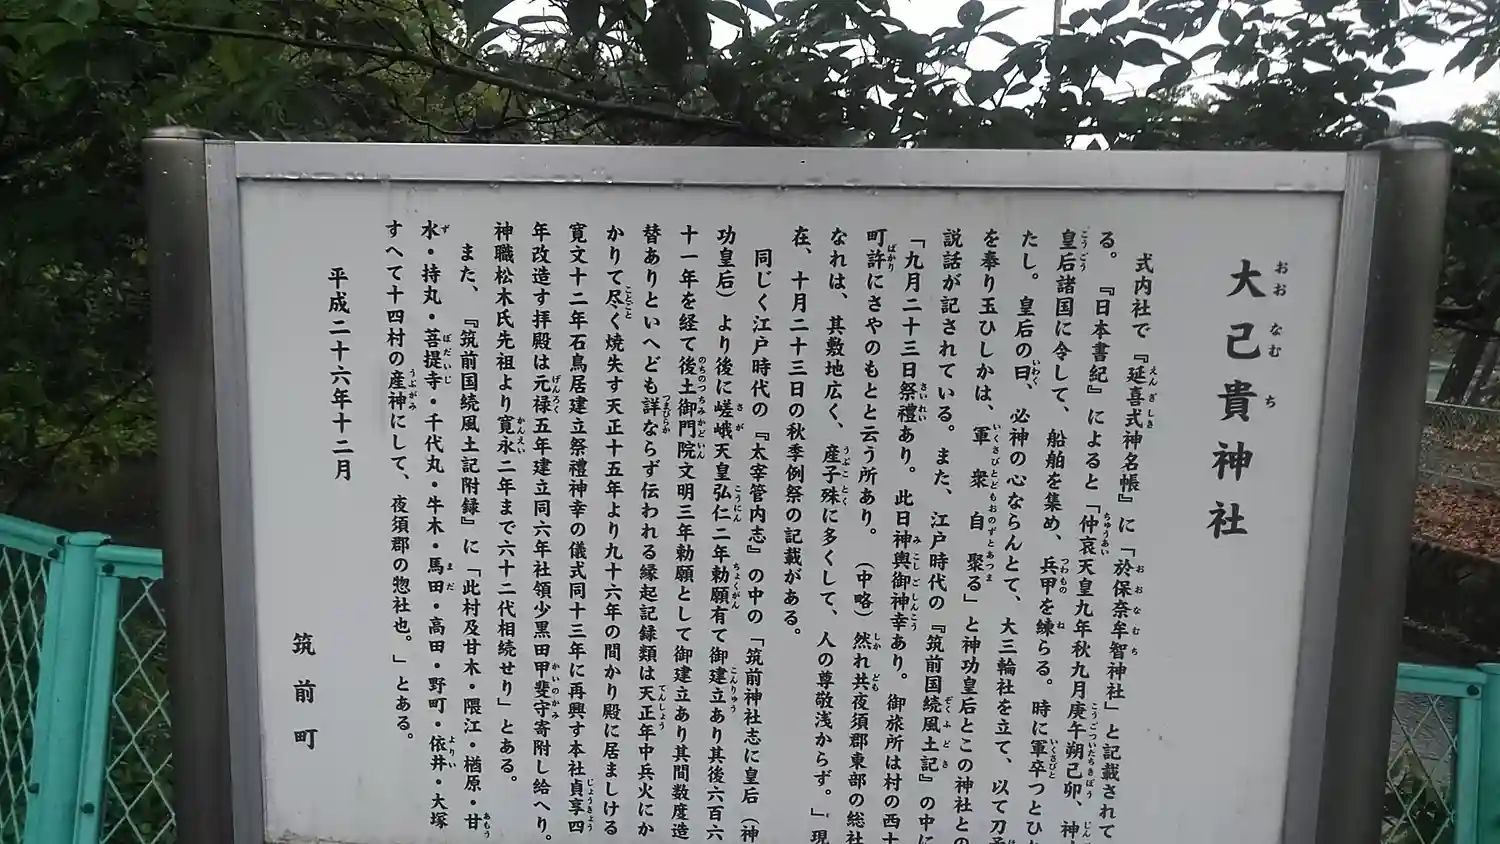 大己貴神社
おおなむち
式内社で『延喜式神名帳』に「於保奈牟智神社」と記載されて
る。『日本書紀』によると「仲哀天皇九年秋九月庚午朔己卯、神
皇后諸国に令して、船舶を集め、兵甲を練らる。時に軍卒つとひ
たし。皇后の曰、必神の心ならんとて、大三輪社を立て、以て刀
を奉り玉ひしかは、軍衆自聚る」と神功皇后とこの神社との
説話が記されている。また、江戸時代の『筑前国続風土記』の中に
「九月二十三日祭禮あり。此日神輿御神幸あり。御旅所は村の西十
町許にさやのもとと云う所あり。（中略）然れ共夜須郡東部の総社
なれは、其敷地広く、産子殊に多くして、人の尊敬浅からず。」現
在、十月二十三日の秋季例祭の記載がある。
同じく江戸時代の『太宰管内志』の中の「筑前神社志に皇后（神
功皇后）より後に嵯峨天皇弘仁二年勅願有て御建立あり其後六百六
十一年を経て後土御門院文明三年勅願として御建立あり其間数度造
替ありといへども詳ならず伝われる縁起記録類は天正年中兵火にか
かりて尽く焼失す天正十五年より九十六年の間かり殿に居ましける
寛文十二年石鳥居建立祭禮神幸の儀式同十三年に再興す本社貞享四
年改造す拝殿は元禄五年建立同六年社領少黒田甲斐守寄附し給へり。
神職松木氏先祖より寛永二年まで六十二代相続せり」とある。
また、『筑前国続風土記附録』に「此村及甘木・隈江・楢原・甘
水・持丸・菩提寺・千代丸・牛木・馬田・高田・野町・依井・大塚
すへて十四村の産神にして、夜須郡の惣社也。」とある。
平成二十六年十二月
筑前町